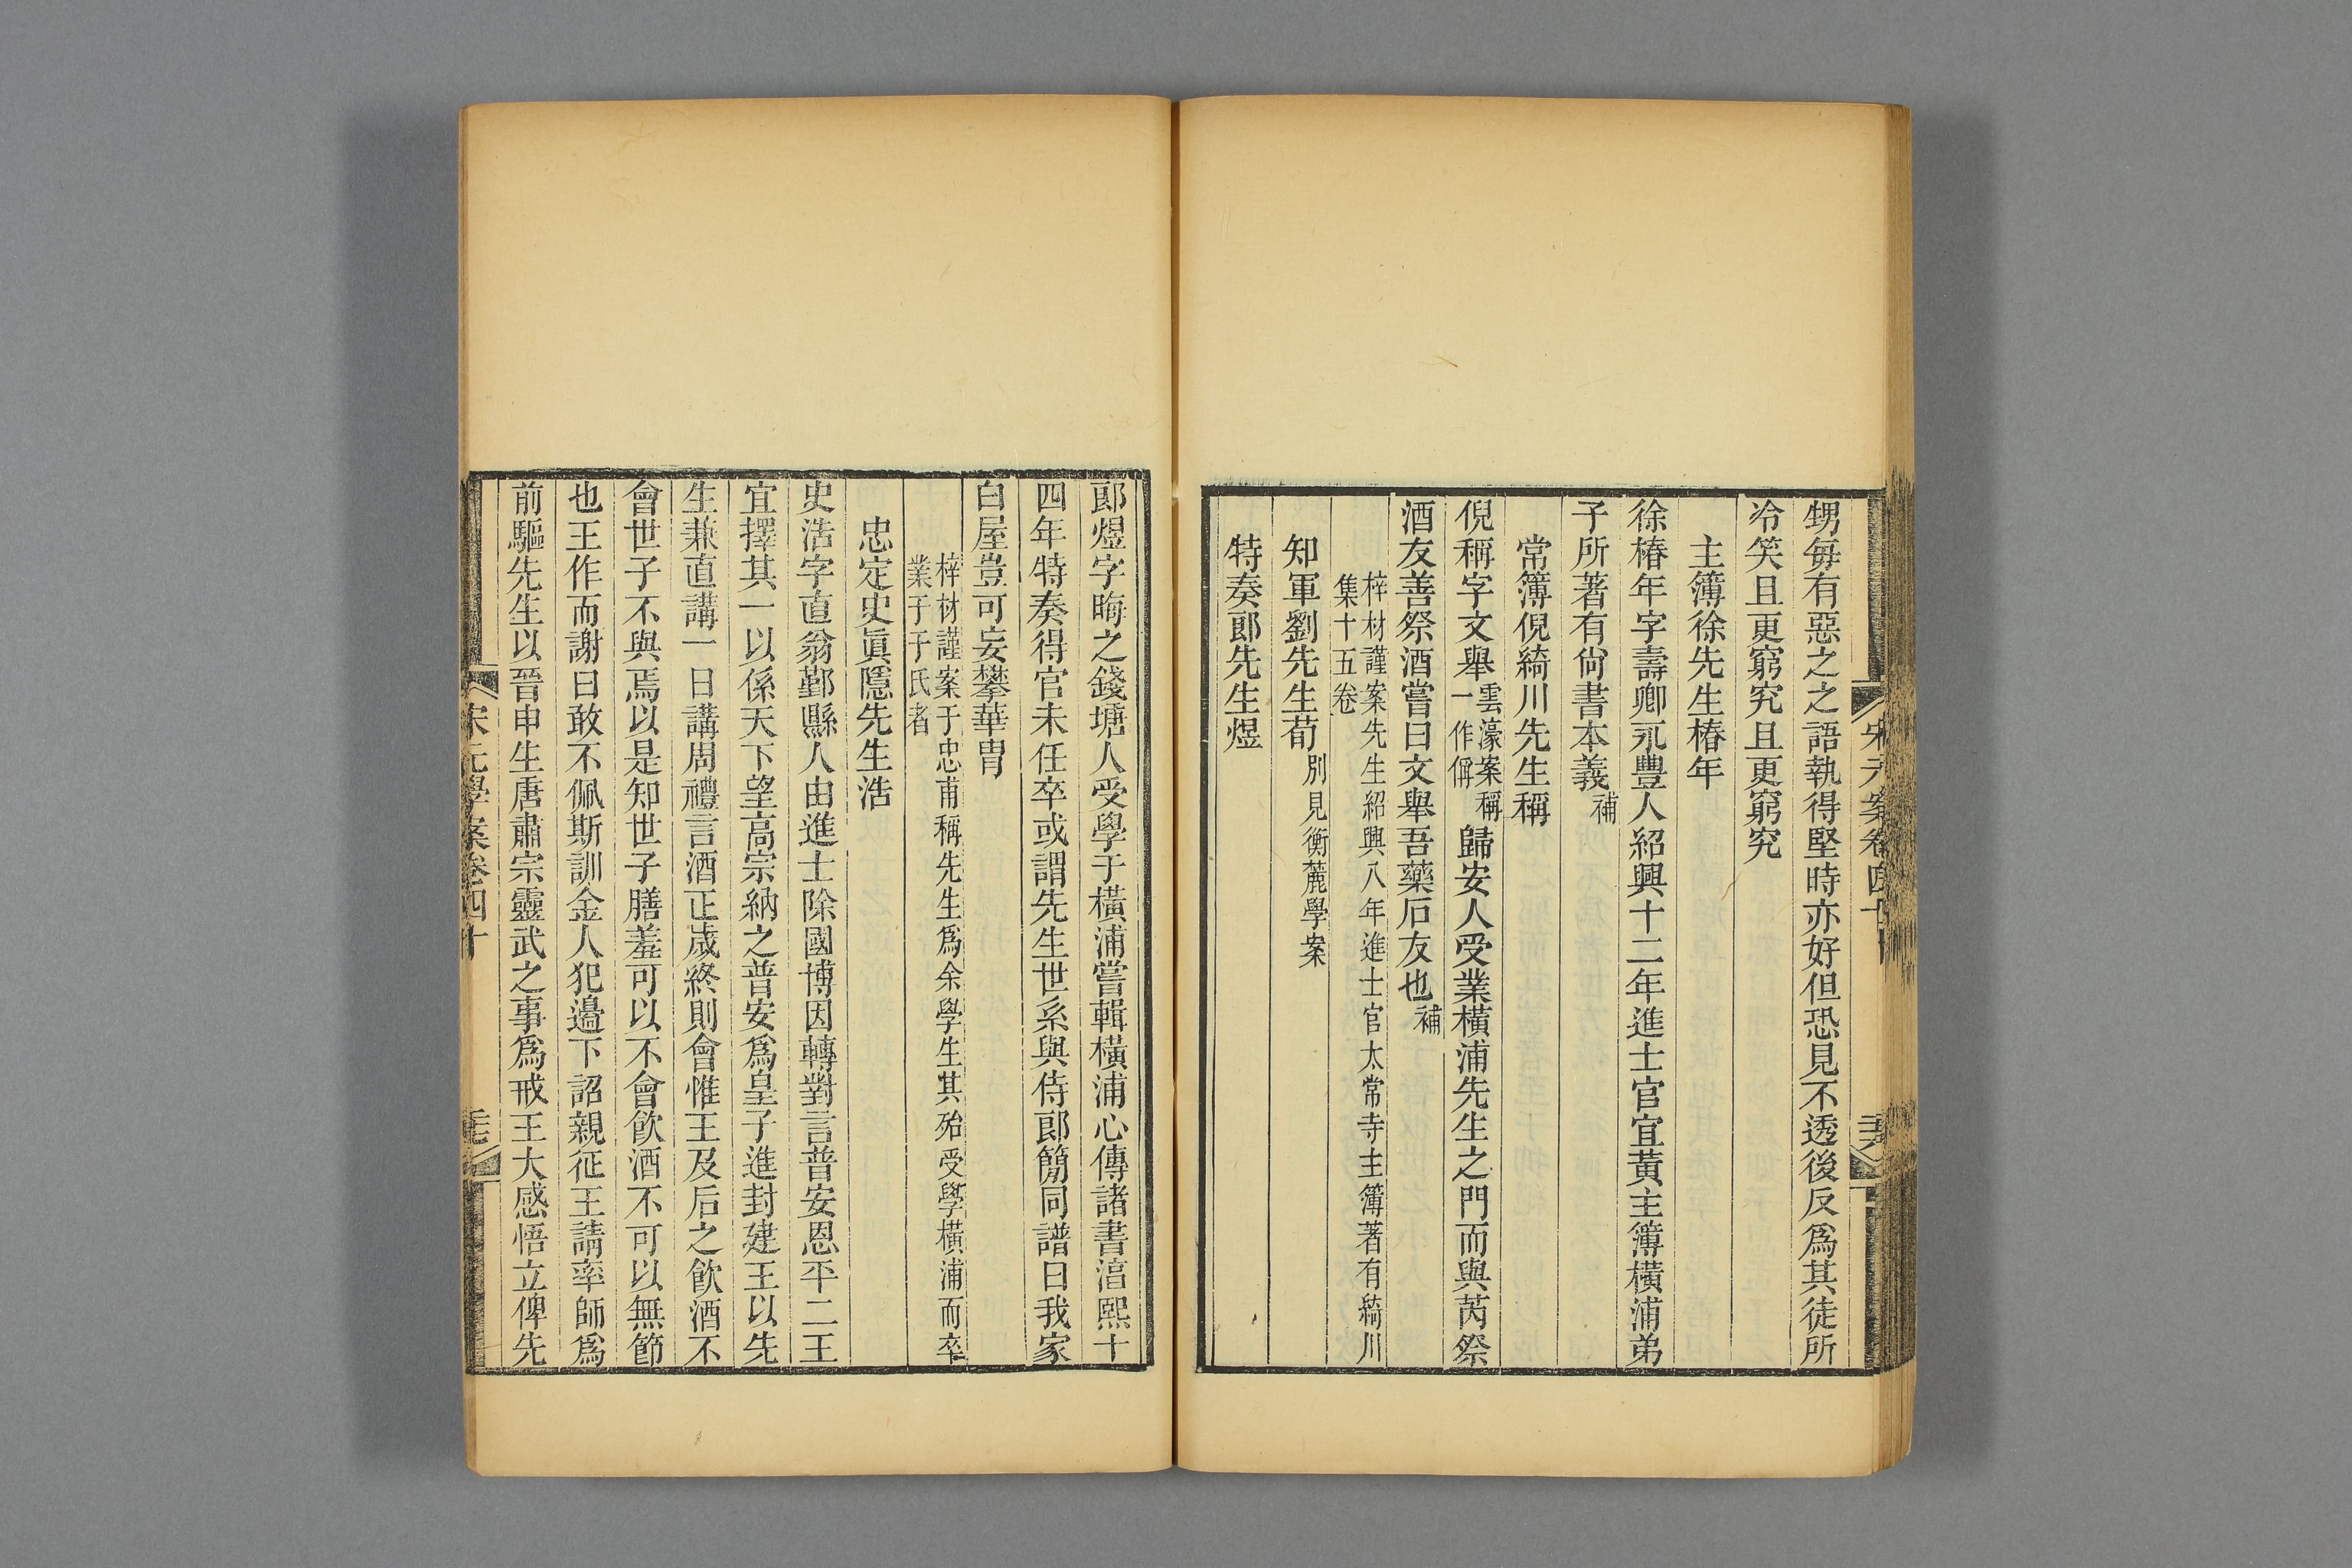 甥每有惡之之語執得堅時亦好但恐見不透後反爲其徒所
冷笑且更窮究且更窮究
主簿徐先生椿年
徐椿年字壽卿永豐人紹興十二年進士官宜黃主簿橫浦弟
子所著有尙書本義補
常簿倪綺川先生稱
倪稱字文舉雲濠案稱一作偁歸安人受業橫浦先生之門而與芮祭
酒友善祭酒嘗曰文舉吾藥石友也補
梓材謹案先生紹興八年進士官太常寺主簿著有綺川
集十五卷
知軍劉先生荀別見衡麓學案
特奏郎先生煜
郎煜字晦之錢塘人受學于橫浦嘗輯橫浦心傳諸書淳熙十
四年特奏得官未任卒或謂先生世系與侍郎簡同譜曰我家
白屋豈可妄攀華胄
梓材謹案于忠甫稱先生爲余學生其殆受學橫浦而卒
業于于氏者
忠定史眞隱先生浩
史浩字直翁鄞縣人由進士除國博因轉對言普安恩平二王
宜擇其一以係天下望高宗納之普安爲皇子進封建王以先
生兼直講一日講周禮言酒正歲終則會惟王及后之飮酒不
會世子不與焉以是知世子膳羞可以不會飮酒不可以無節
也王作而謝曰敢不佩斯訓金人犯邊下詔親征王請率師爲
前驅先生以晉申生唐肅宗靈武之事爲戒王大感悟立俾先
宋元學案卷四十